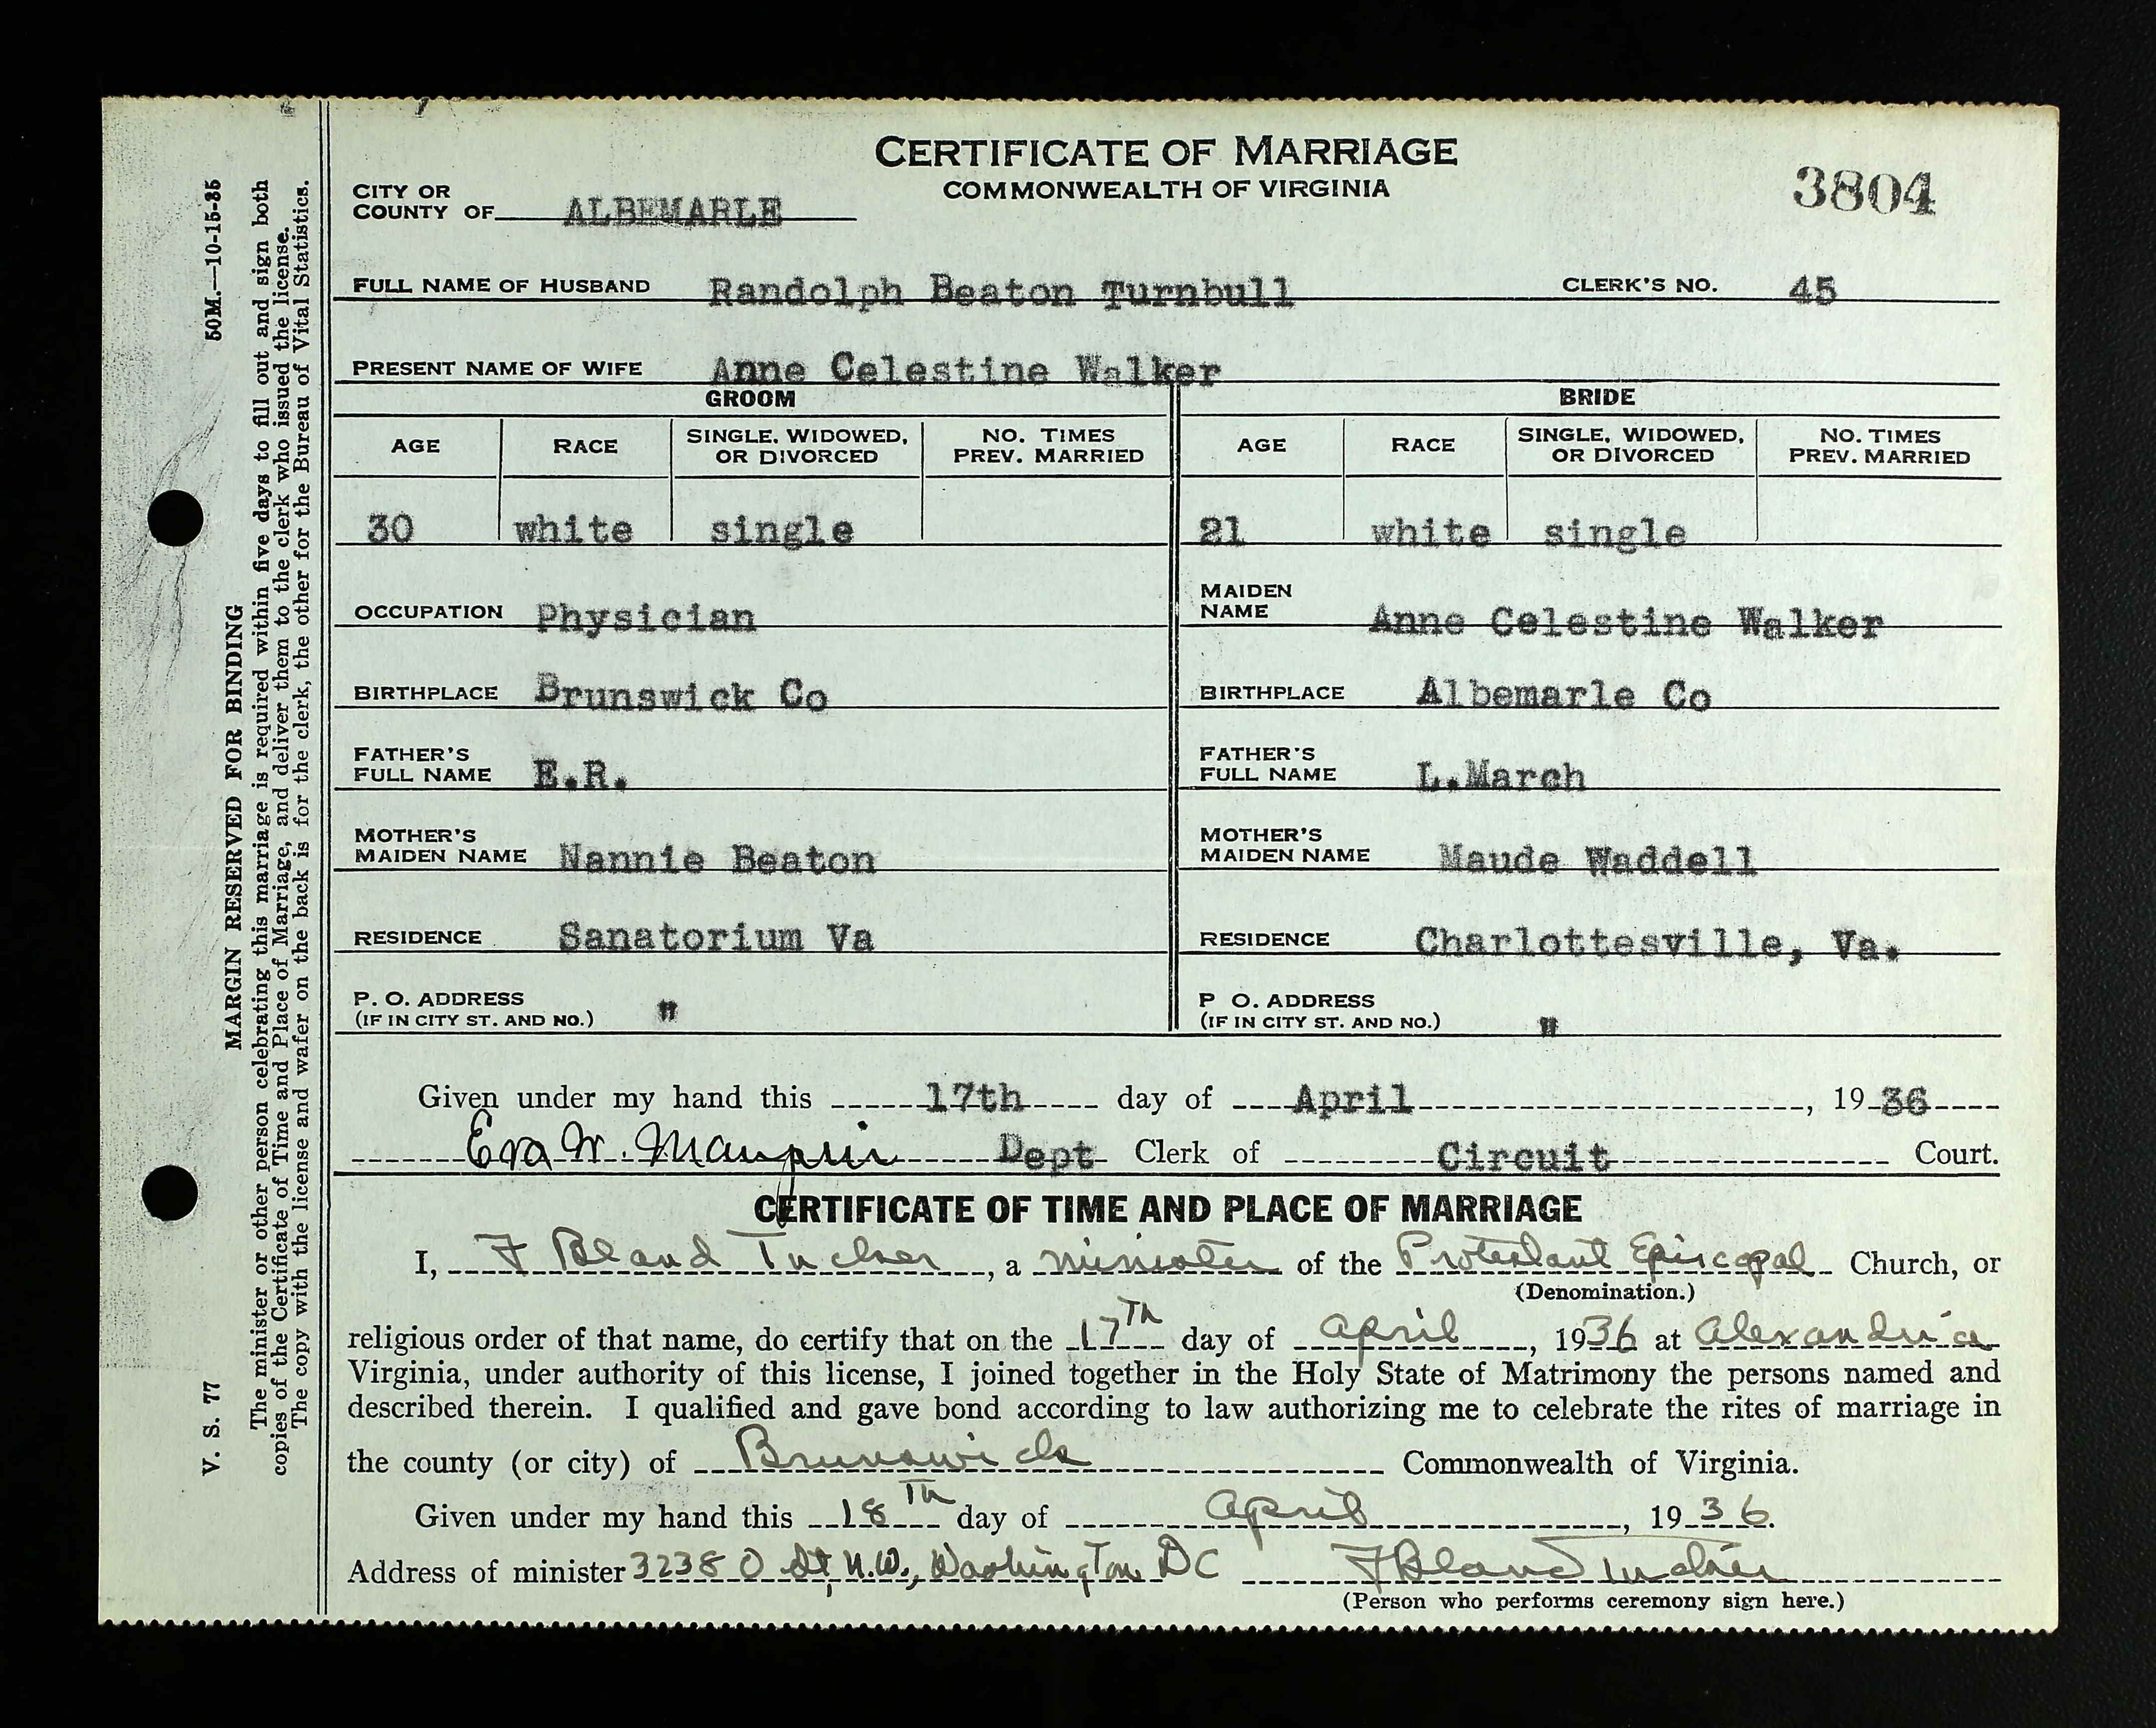 CERTIFICATE OF MARRIAGE
COMMONWEALTH OF VIRGINIA
3804
CITY OR
COUNTY OF ALBEMARLE
FULL NAME OF HUSBAND Randolph Beaton Turnbull CLERK'S NO. 45
PRESENT NAME OF WIFE Anne Celestine Walker
GROOM BRIDE
AGE RACE SINGLE, WIDOWED, OR DIVORCED NO. TIMES PREV. MARRIED AGE RACE SINGLE, WIDOWED, OR DIVORCED NO. TIMES PREV. MARRIED
30 white single 21 white single
OCCUPATION Physician MAIDEN NAME Anne Celestine Walker
BIRTHPLACE Brunswick Co BIRTHPLACE Albemarle Co
FATHER'S FULL NAME E.R. FATHER'S FULL NAME L.March
MOTHER'S MAIDEN NAME Nannie Beaton MOTHER'S MAIDEN NAME Maude Waddell
RESIDENCE Sanatorium Va RESIDENCE Charlottesville, Va.
P. O. ADDRESS (IF IN CITY ST. AND NO.) " P O. ADDRESS (IF IN CITY ST. AND NO.) "
Given under my hand this 17th day of April, 1936
Eva W. Maupin Dept Clerk of Circuit Court.
CERTIFICATE OF TIME AND PLACE OF MARRIAGE
I, F Bland Tucker, a minister of the Protestant Episcopal Church, or
(Denomination.)
religious order of that name, do certify that on the 17Th day of April, 1936 at Alexandria
Virginia, under authority of this license, I joined together in the Holy State of Matrimony the persons named and
described therein. I qualified and gave bond according to law authorizing me to celebrate the rites of marriage in
the county (or city) of Brunswick Commonwealth of Virginia.
Given under my hand this 18Th day of April, 1936.
Address of minister 3238 O St, N.W., Washington DC F Bland Tucker
(Person who performs ceremony sign here.)
V. S. 77 50M.—10-15-35
MARGIN RESERVED FOR BINDING
The minister or other person celebrating this marriage is required within five days to fill out and sign both
copies of the Certificate of Time and Place of Marriage, and deliver them to the clerk who issued the license.
The copy with the license and wafer on the back is for the clerk, the other for the Bureau of Vital Statistics.